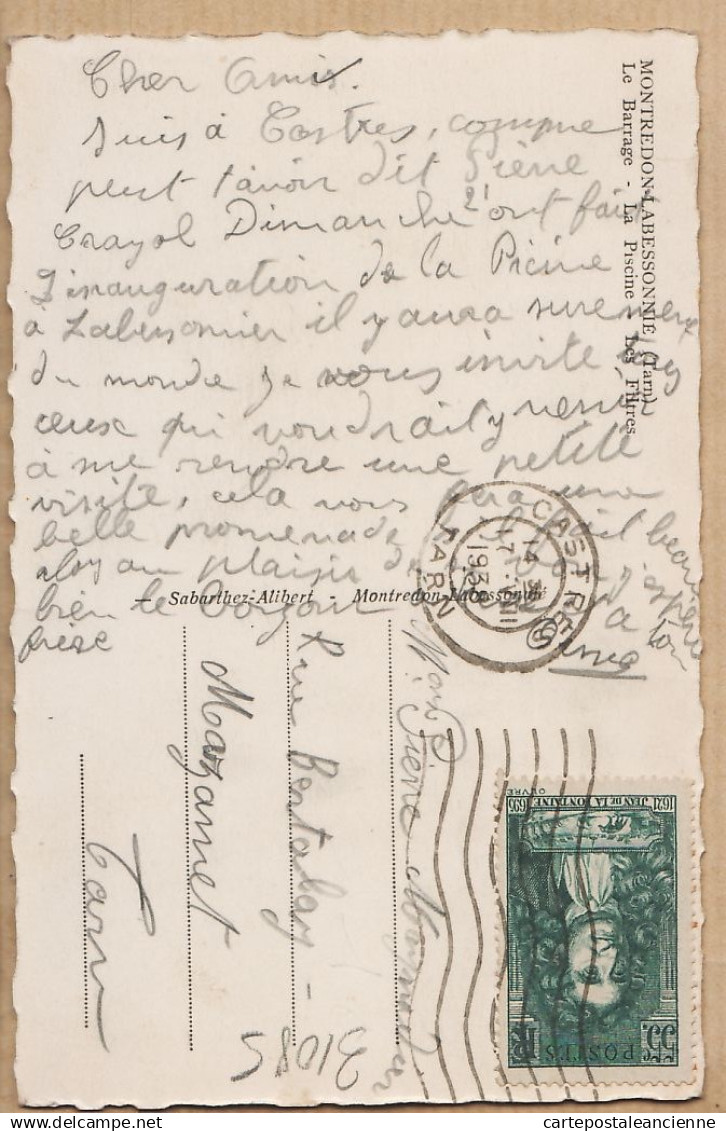 Cher Amis.
suis à Castres, comme
peut t'avoir dit Pierre
Crayol Dimanche 21 ont fait
l'inauguration de la Picine
à Labessonnier il y aura surement
du monde je vous invite
ceux qui voudrait y venir
à me rendre une petite
visite, cela vous fera une
belle promenade
au plaisir de
bien le
MONTREDON-LABESSONNIÉ (Tarn)
Le Barrage - La Piscine - Les Filtres
Sabarthez-Alibert - Montredon-Labessonnié
CASTRES
TARN
Pierre
Rue
Mazamet
Tarn
31085
1621 JEAN DE LA FONTAINE 1695
POSTES
55c
cartepostaleancienne